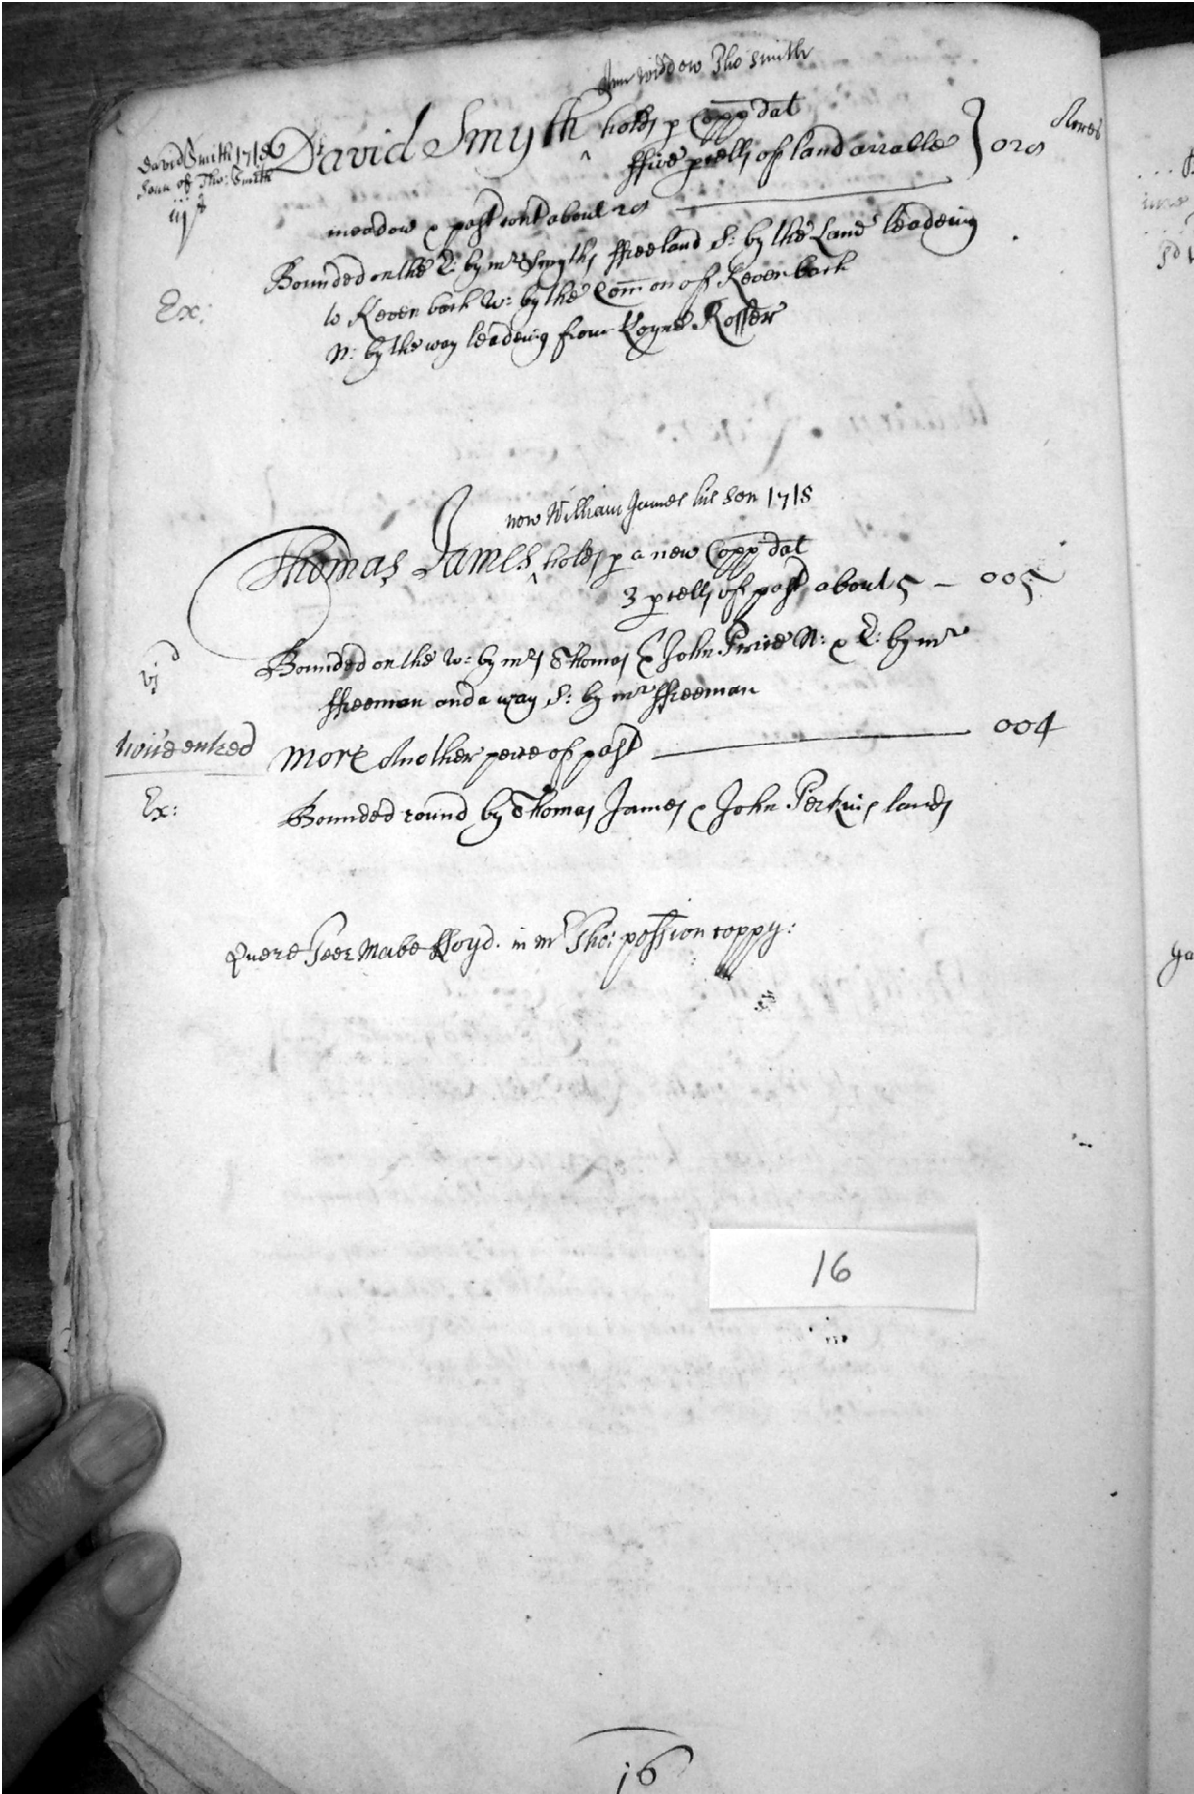 Ann widdow Tho Smith
Acres
David Smith 1718
Sonn of Tho: Smith
iijs
David Smyth ^ holds p Copp dat
ffive pcells of land arrable } 020
meadow & past cont about 20
Bounded on the E: by mrs Smyths ffreeland S: by the Lane leadeing
Ex:
to Keven bach W: by the Comon of Keven bach
N: by the way leadeing from Koyne Rosser
now William James his son 1718
Thomas James ^ holds p a new Copp dat
3 pcells of past about 5 — 005
vjd
Bounded on the W: by mrs Thomas & John Price N: & E: by mr
ffreeman and a way S: by mr ffreeman
twise entred
More Another peice of past — 004
Ex:
Bounded round by Thomas James & John Perkins lands
Quere Peer Mabe lloyd. in mr Tho: possion coppy:
16
16